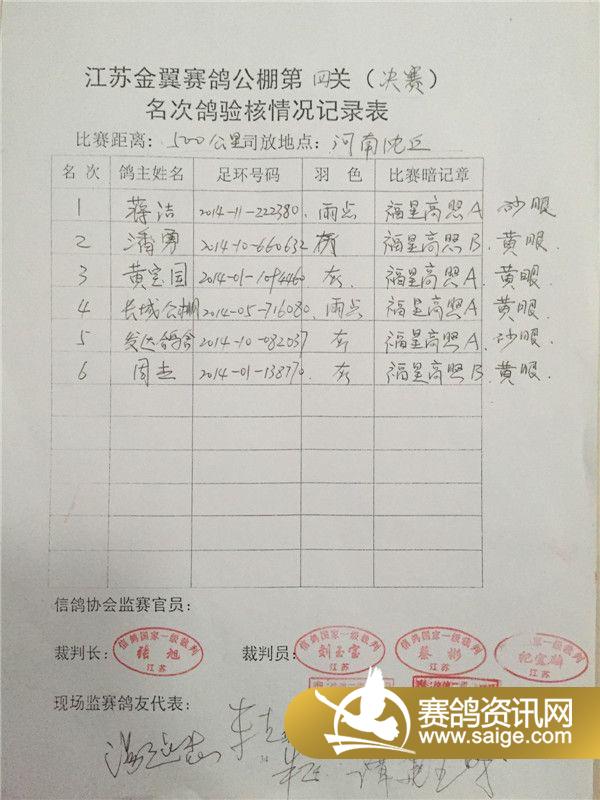 江苏金翼赛鸽公棚第四关（决赛）
名次鸽验核情况记录表
比赛距离：500公里司放地点：河南沈丘
名 次 鸽主姓名 足环号码 羽 色 比赛暗记章
1 蒋洁 2014-11-222380 雨点 福星高照A 砂眼
2 潘勇 2014-10-660632 福星高照B 黄眼
3 黄定国 2014-01-1094460 灰 福星高照A 黄眼
4 长城公棚 2014-05-716080 雨点 福星高照A 黄眼
5 发达鸽舍 2014-10-082037 灰 福星高照A 砂眼
6 周杰 2014-01-138770 灰 福星高照B 黄眼
信鸽协会监赛官员：
裁判长： 信鸽国家一级裁判 张旭 江苏 裁判员： 信鸽国家一级裁判 刘玉富 江苏 信鸽国家一级裁判 蔡彬 江苏 国家一级裁判 江苏
现场监赛鸽友代表：
赛鸽资讯网
www.saige.com